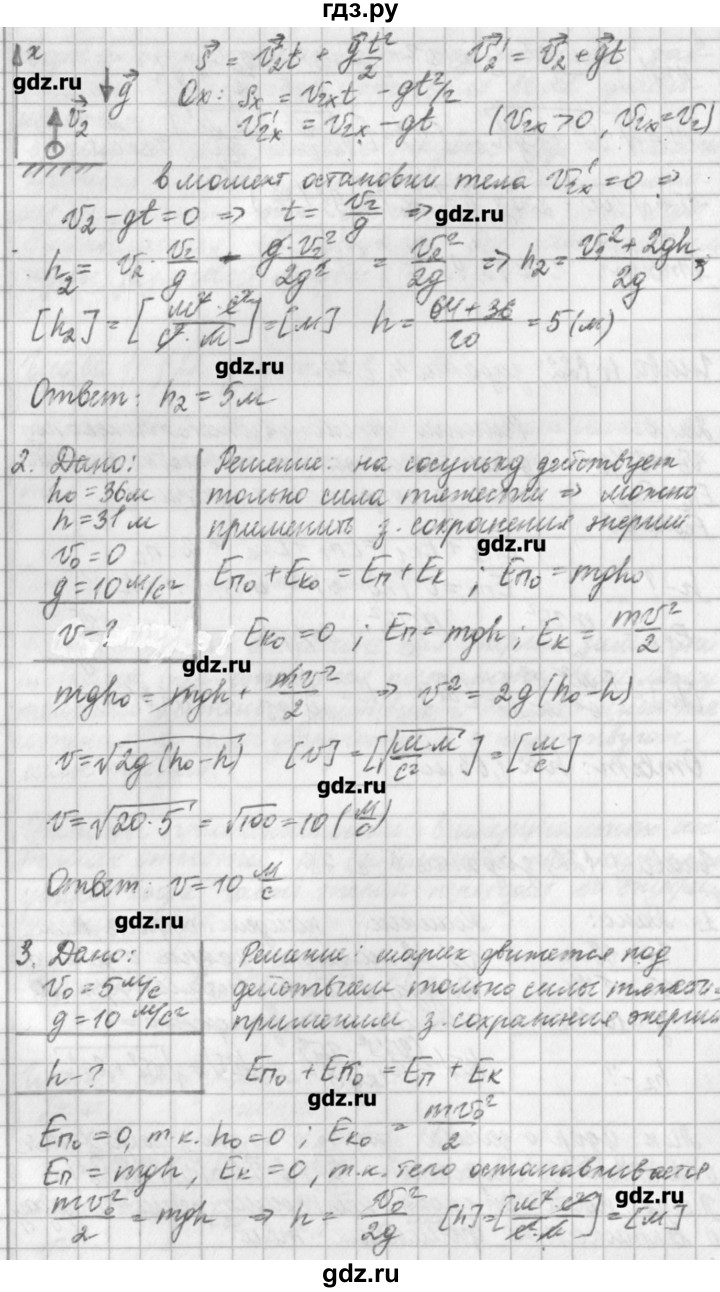 гдз.ру
x
S⃗ = v⃗₂t + g⃗t²/2    v⃗₂' = v⃗₂ + g⃗t
gdz.ru
g⃗ Ox: sₓ = v₂ₓt - gt²/2
v⃗₂ v₂ₓ' = v₂ₓ - gt (v₂ₓ > 0, v₂ₓ = v₂)
в момент остановки тела v₂ₓ' = 0 ⇒
v₂ - gt = 0 ⇒ t = v₂/g ⇒
gdz.ru
h₂ = v₂ · v₂/g - g·v₂²/2g² = v₂²/2g ⇒ h₂ = (v₁² + 2gh)/2g ;
[h₂] = [м²·с²/с²·м] = [м] h = (64 + 36)/20 = 5 (м)
gdz.ru
Ответ: h₂ = 5 м
2. Дано: Решение: на сосульку действует
h₀ = 36 м только сила тяжести ⇒ можно
h = 31 м применить з. сохранения энергии
gdz.ru
v₀ = 0 Eп₀ + Eк₀ = Eп + Eк ; Eп₀ = mgh₀
g = 10 м/с²
v - ? Eк₀ = 0 ; Eп = mgh ; Eк = mv²/2
gdz.ru
mgh₀ = mgh + mv²/2 ⇒ v² = 2g(h₀ - h)
v = √(2g(h₀ - h)) [v] = [√(м·м/с²)] = [м/с]
gdz.ru
v = √(20·5) = √100 = 10 (м/с)
Ответ: v = 10 м/с
gdz.ru
3. Дано: Решение: шарик движется под
v₀ = 5 м/с действием только силы тяжести ⇒
g = 10 м/с² применим з. сохранения энергии
h - ? Eп₀ + Eк₀ = Eп + Eк
gdz.ru
Eп₀ = 0, т.к. h₀ = 0 ; Eк₀ = mv₀²/2
Eп = mgh, Eк = 0, т.к. тело останавливается
gdz.ru
mv₀²/2 = mgh ⇒ h = v₀²/2g [h] = [м²·с²/с²·м] = [м]
gdz.ru